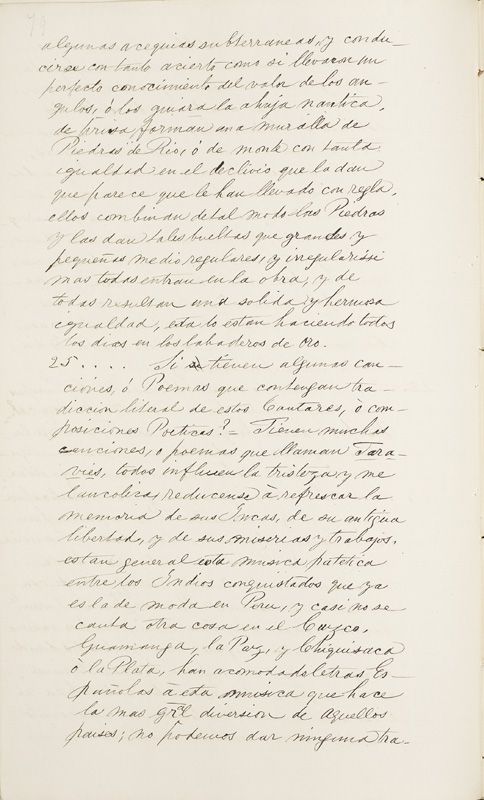 algunas acequias subterraneas, y condu-
cirse con tanto acierto como si llevasen un
perfecto conocimiento del valor de los an-
gulos, ó los guiara la ahuja nautica,
de prisa forman una muralla de
Piedras de Rio, ó de monte con tanta
igualdad en el declivio que la dan
que parece que le han llevado con regla.
ellos combinan de tal modo las Piedras
y las dan tales bueltas que grandes y
pequeñas medio regulares, y irregularissi
mas todas entran en la obra, y de
todas resultan una solida y hermosa
igualdad, esta lo estan haciendo todos
los dias en los labaderos de oro.
25.... Si se tienen algunas can-
ciones, ó Poemas que contengan tra-
diccion literal de estos Cantares, ò com-
posiciones Poeticas? = Tienen muchas
canciones, o poemas que llaman Tara-
vies, todos influien la tristeza y me
lancoliza, reducense à refrescar la
memoria de sus Incas, de su antigua
libertad, y de sus miserias y trabajos,
es tan general esta musica patetica
entre los Indios conquistados que ya
es la de moda en Peru, y casi no se
canta otra cosa en el Cuzco,
Guamanga, la Paz, y Chiquisaca
ò la Plata, han acomodado letras Es-
pañolas à esta musica que hace
la mas grãl diversion de aquellos
paises; no podemos dar ninguna tra-